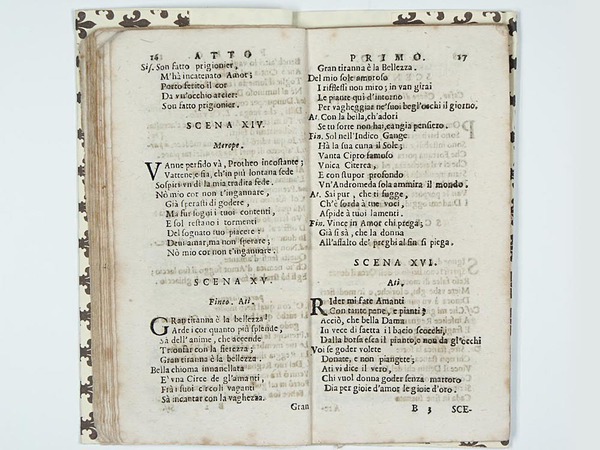 16 ATTO
Sif. Son fatto prigionier,
M'hà incatenato Amor;
Porto ferito il cor
Da vn'occhio arcier:
Son fatto prigionier.
SCENA XIV.
Merope.
VAnne perfido và, Protheo incostante;
Vattene, e sia, ch'in più lontana sede
Sospiri vn dì la mia tradita fede.
Nò mio cor non t'ingannare,
Già sperasti di godere,
Ma fur sogni i tuoi contenti,
E sol restano i tormenti
Del sognato tuo piacere:
Deui amar, ma non sperare;
Nò mio cor non t'ingannare.
SCENA XV.
Fineo. Ati.
GRan tiranna è la bellezza!
Arde i cor quanto più splende,
Sà dell'anime, che accende
Trionfar con la fierezza;
Gran tiranna è la bellezza.
Bella chioma innanellata
E' vna Circe de gl'amanti,
Frà i suoi circoli vaganti
Sà incantar con la vaghezza.
Gran
PRIMO. 17
Gran tiranna è la Bellezza.
Del mio sole amoroso
I riflessi non miro; in van girai
Le piante qui d'intorno
Per vagheggiar ne' suoi begl'occhi il giorno.
At. Con la bella, ch'adori
Se tu sorte non hai, cangia pensiero.
Fin. Sol nell'Indico Gange
Hà la sua cuna il Sole;
Vanta Cipro famoso
Vnica Citerea,
E con stupor profondo
Vn'Andromeda sola ammira il mondo.
At. Sai pur, che ti fugge,
Ch'è sorda à tue voci,
Aspide à tuoi lamenti.
Fin. Vince in Amor chi prega;
Già si sà, che la donna
All'assalto de' preghi al fin si piega.
SCENA XVI.
Ati.
RIder mi fate Amanti
Con tante pene, e pianti?
Acciò, che bella Dama
In vece di saetta il bacio scocchi,
Dalla borsa esca il pianto, e non da gl'occhi
Voi se goder volete
Donate, e non piangete;
Ati vi dice il vero,
Chi vuol donna goder senza martoro
Dia per gioie d'amor le gioie d'oro.
B 3 SCE-